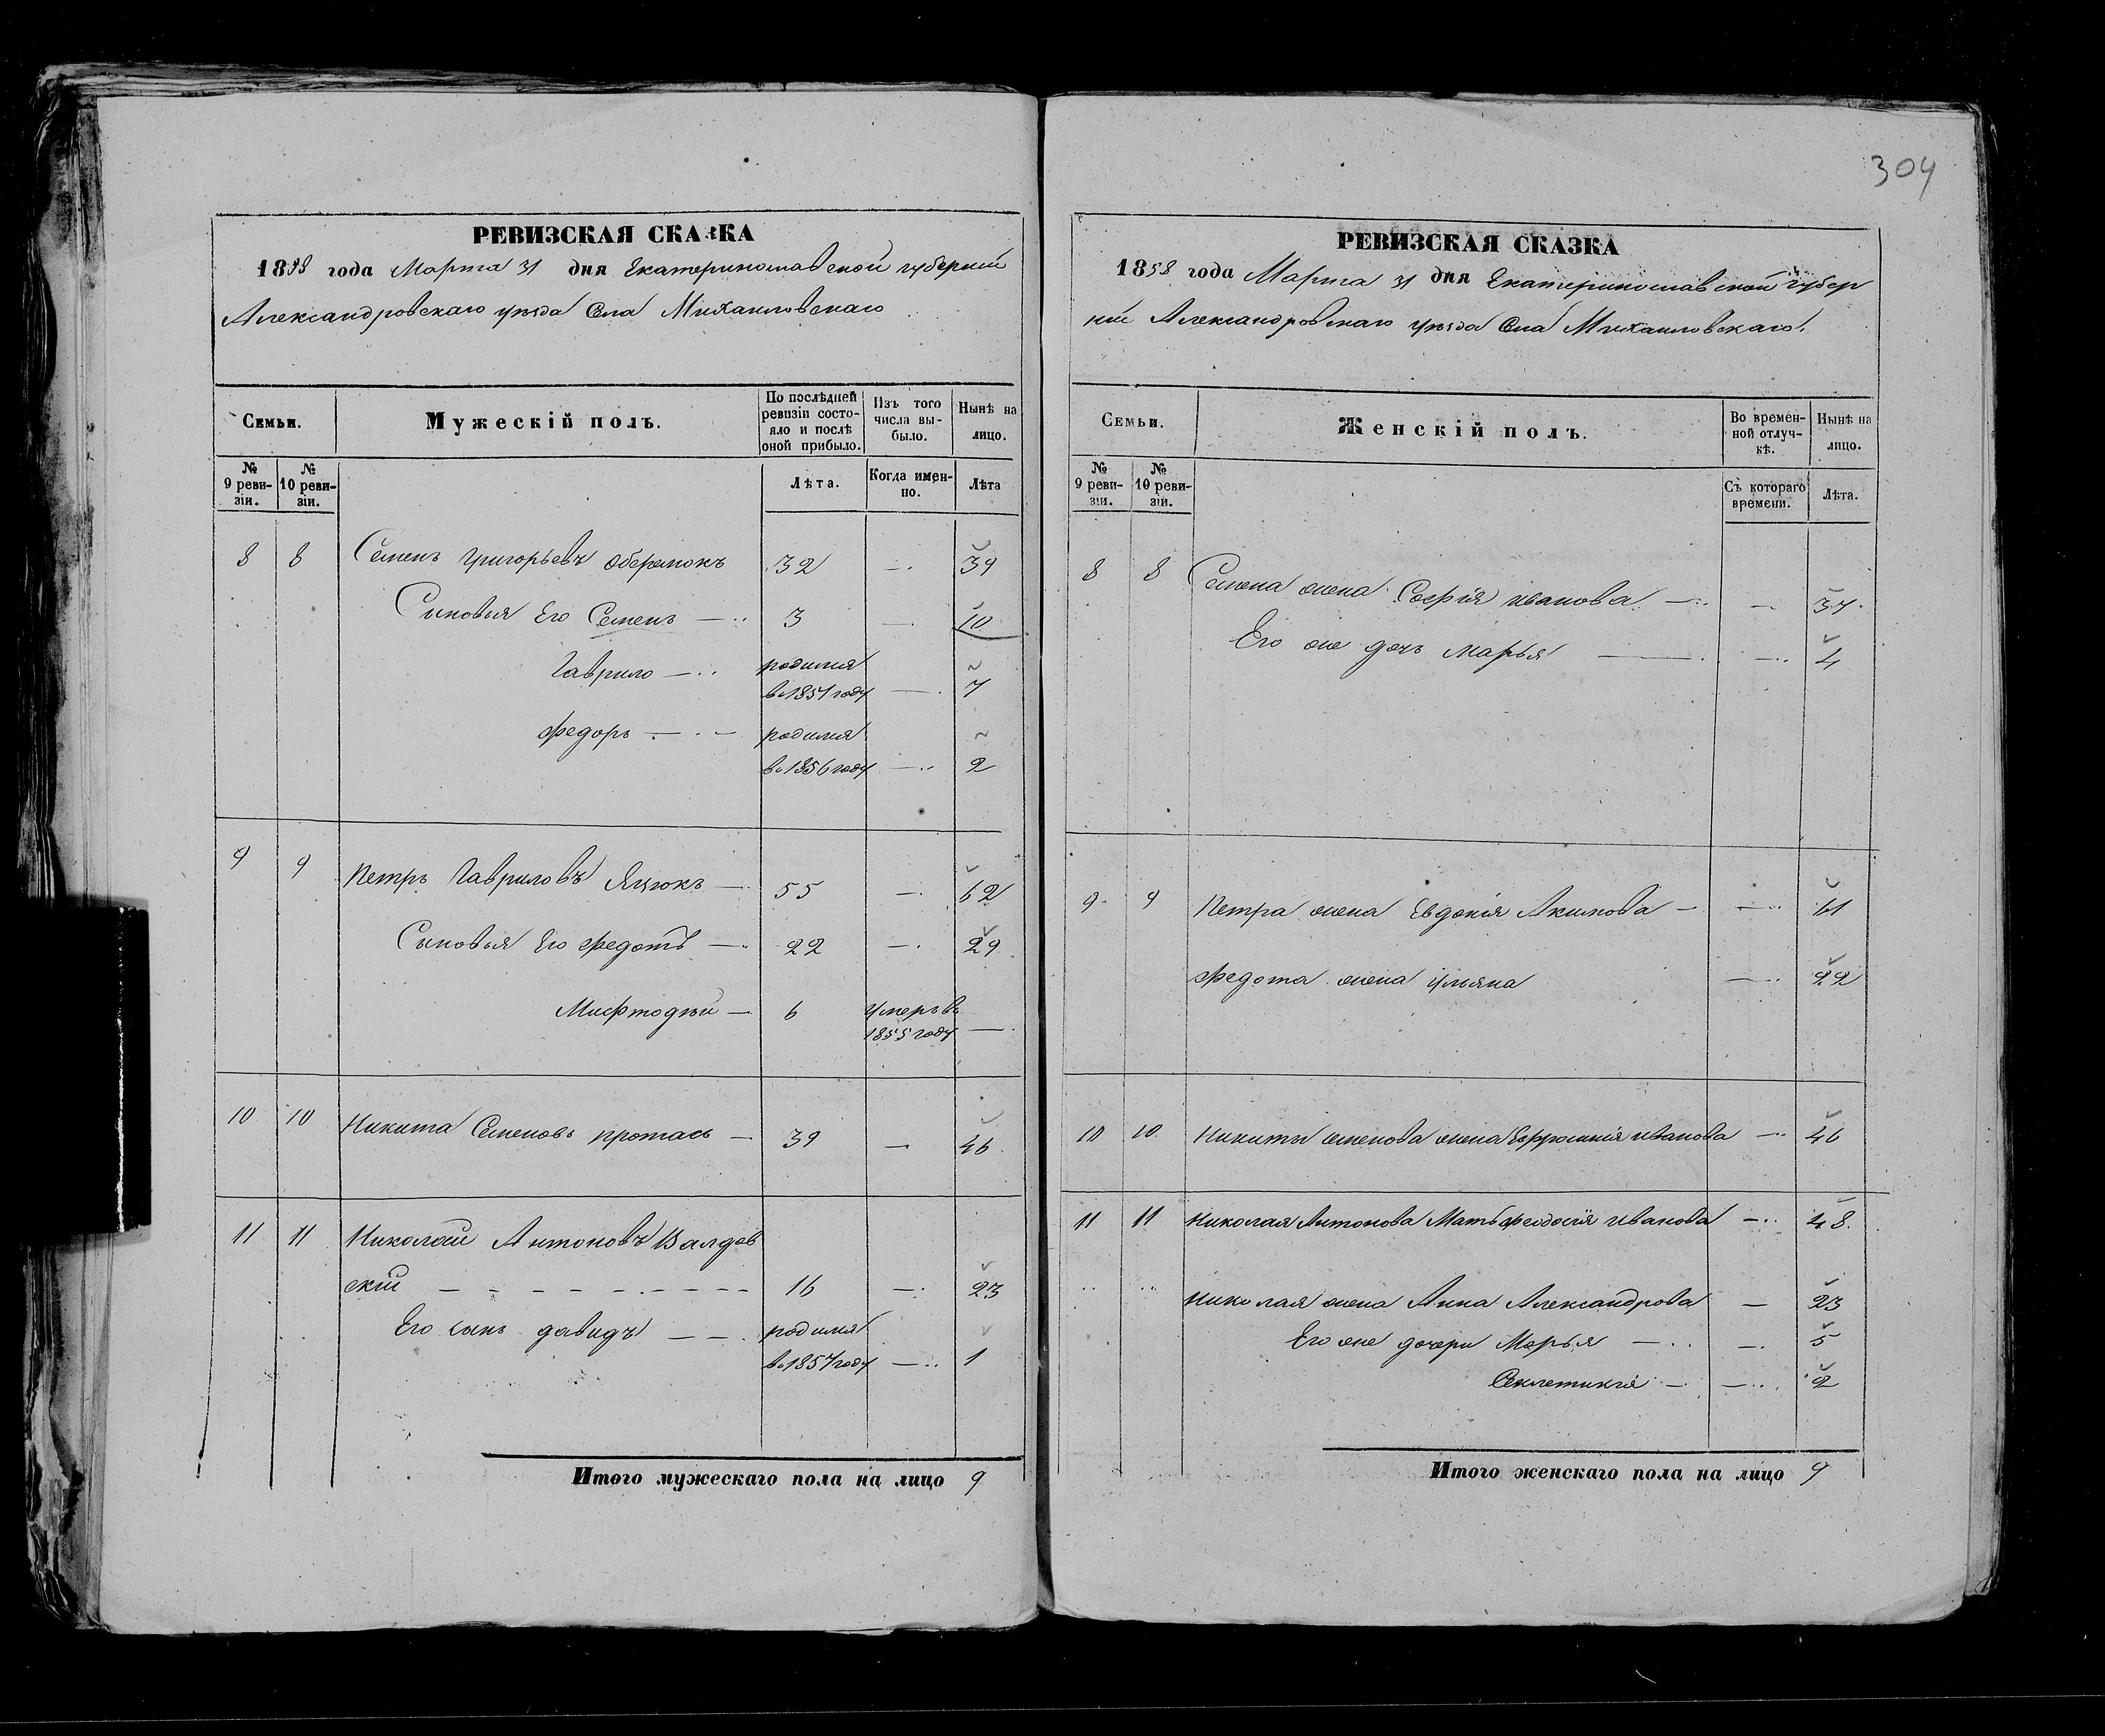 304
РЕВИЗСКАЯ СКАЗКА
1858 года Марта 31 дня Екатеринославской губернии
Александровскаго уезда Села Михайловскаго
Семьи.
Мужескій полъ.
По послѣдней ревизіи состояло и послѣ оной прибыло.
Изъ того числа выбыло.
Нынѣ на лицо.
№ 9 ревизіи.
№ 10 ревизіи.
Лѣта.
Когда именно.
Лѣта
8 8 Семенъ Григорьевъ Оберемокъ 32 — 39
Сыновья Его Семенъ — 3 — 10
Гаврило — родился
в 1851 году — 7
Федоръ — родился
в 1856 году — 2
9 9 Петръ Гавриловъ Яцюкъ — 55 — 62
Сыновья Его Федотъ — 22 — 29
Мифтодѣй — 6 Умеръ в
1855 году —
10 10 Никита Семеновъ Протасъ — 39 — 46
11 11 Николай Антоновъ Валдов
скій — 16 — 23
Его сынъ Давидъ — родился
в 1857 году — 1
Итого мужескаго пола на лицо 9
РЕВИЗСКАЯ СКАЗКА
1858 года Марта 31 дня Екатеринославской губер
ніи Александровскаго уезда Села Михайловскаго.
Семьи.
Женскій полъ.
Во временной отлучкѣ.
Нынѣ на лицо.
№ 9 ревизіи.
№ 10 ревизіи.
Съ котораго времени.
Лѣта.
8 8 Семена жена Софія Иванова — — 37
Его же дочь Марья — — 4
9 9 Петра жена Евдокія Акимова — — 61
Федота жена Ульяна — 22
10 10 Никиты Семенова жена Ефросинія Иванова — 46
11 11 Николая Антонова Мать Феодосія Иванова — 48
Николая жена Анна Александрова — 23
Его же дочери Марья — — 5
Секлетикія — — 2
Итого женскаго пола на лицо 9